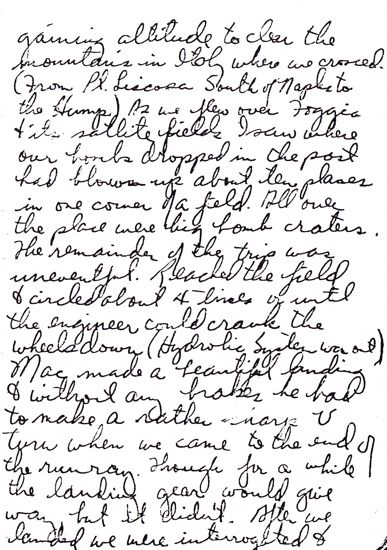 gaining altitude to clear the
mountains in Italy where we crossed.
(From Pt. Liscosa South of Naples to
the Hump) As we flew over Foggia
& its satlite fields I saw where
our bombs dropped in the past
had blown up about ten planes
in one corner of a field. All over
the place were big bomb craters.
The remainder of the trip was
uneventful. Reached the field
& circled about 4 times or until
the engineer could crank the
wheels down (Hydrolic System was out)
Mac made a beautiful landing
& without any brakes he had
to make a rather sharp U
turn when we came to the end of
the runway. Though for a while
the landing gear would give
way but it didn't. After we
landed we were interrogated &